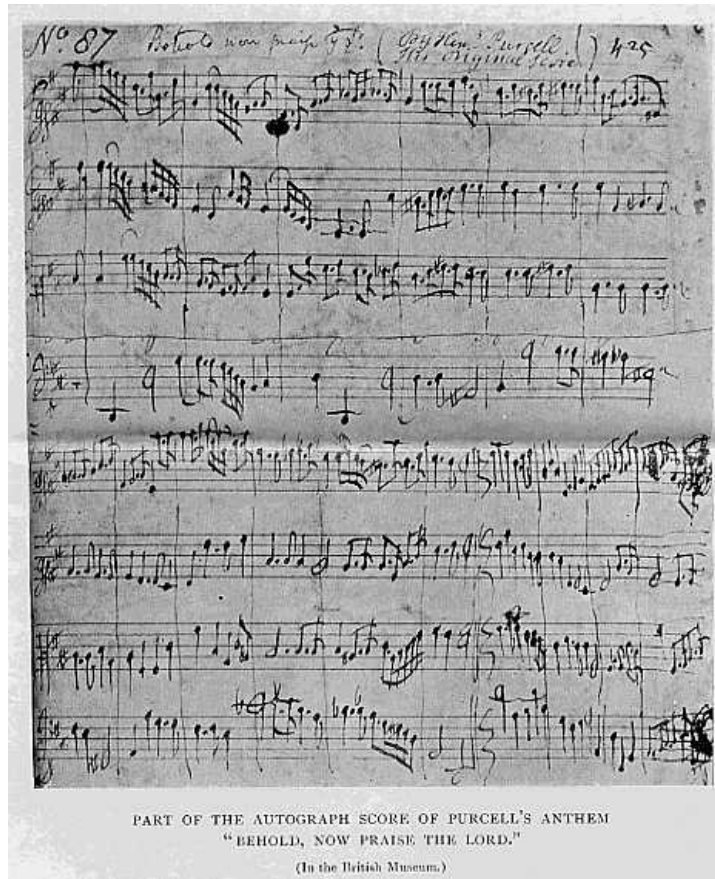 No. 87 Behold now praise ye Ld. (By Hen: Purcell His Original Score) 425
PART OF THE AUTOGRAPH SCORE OF PURCELL'S ANTHEM
"BEHOLD, NOW PRAISE THE LORD."
(In the British Museum.)